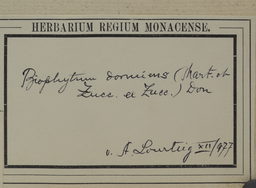 HERBARIUM REGIUM MONACENSE.
Biophytum dormiens (Mart. et
Zucc. ex Zucc.) Don
v. A Lourteig XII/1977